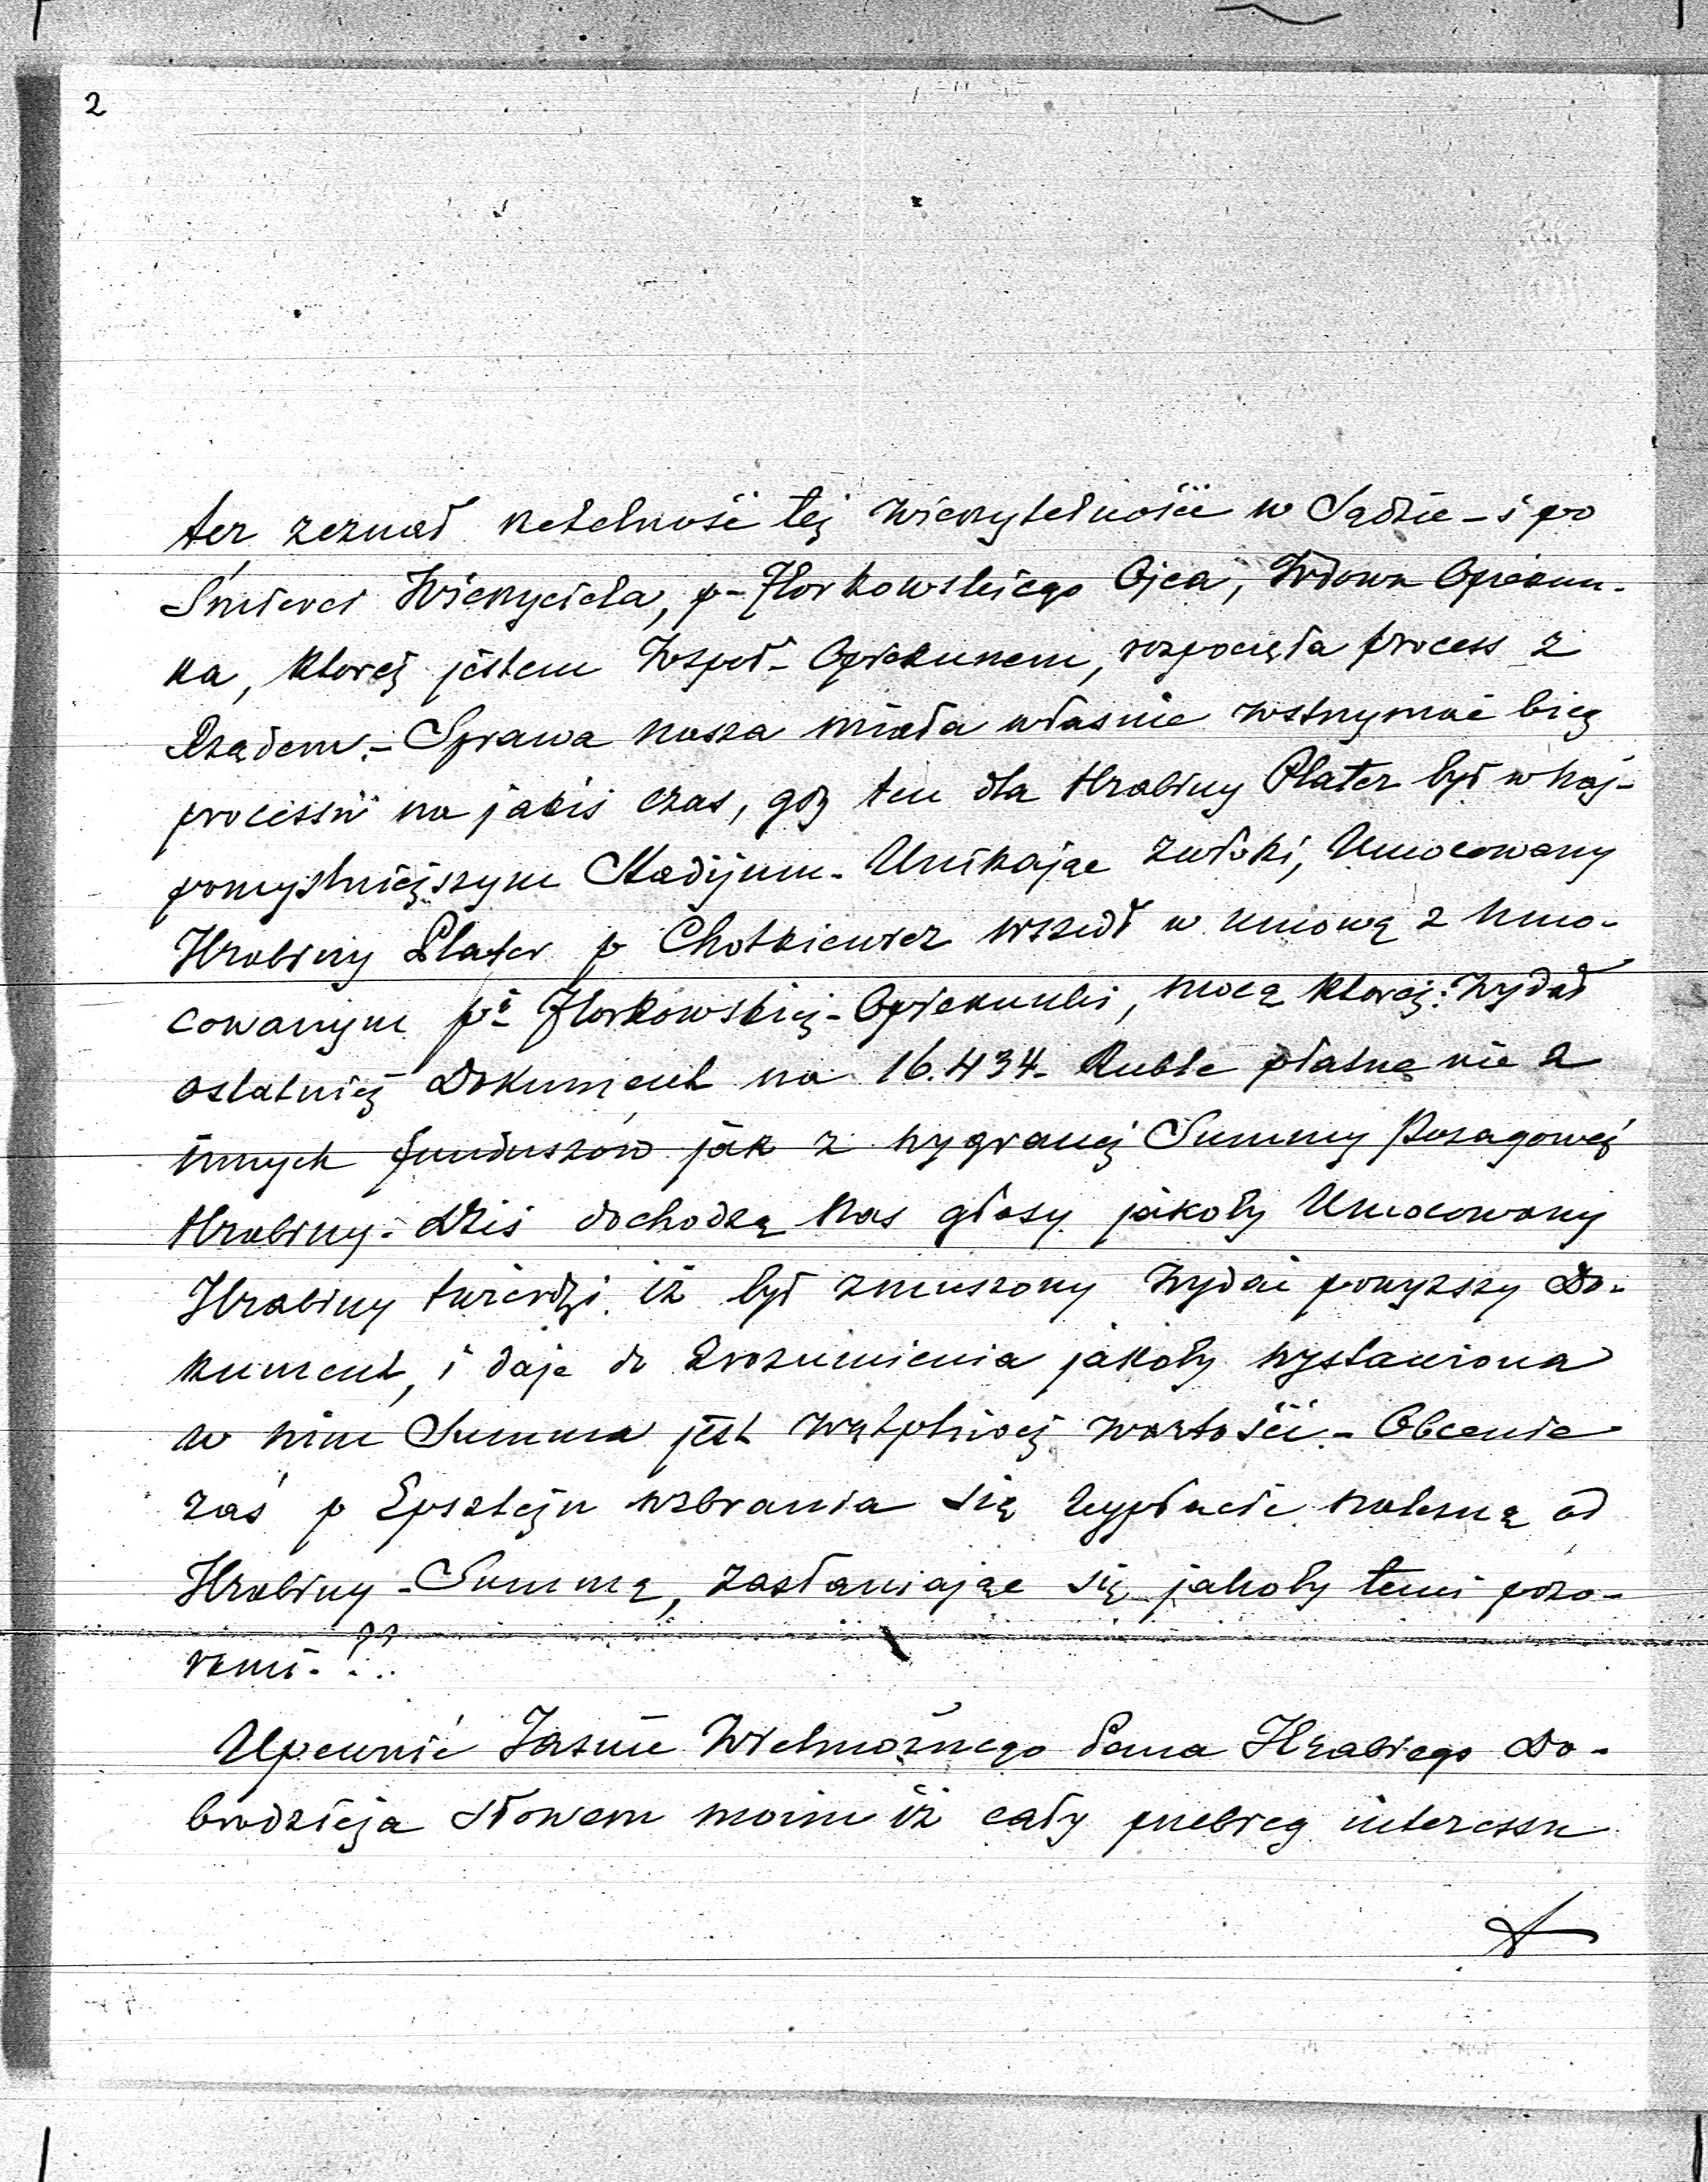 2
ter zeznał rzetelność tej wierzytelności w Sądzie - i po
Śmierci Wierzyciela, p- Florkowskiego Ojca, Wdowa Opiekun-
ka, ktorej jestem Współ-Opiekunem, rozpoczęła process z
Rządem. - Sprawa nasza miała właśnie wstrzymać bieg
processu na jakiś czas, gdy ten dla Hrabiny Plater był w naj-
pomyślniejszym Stadijum. Unikając zwłoki, Umocowany
Hrabiny Plater p Chotkiewicz wszedł w umowę z Umo-
cowanym pi Florkowskiej - Opiekunki, mocą ktorej: Wydał
ostatniej Dokument na 16.434. Ruble płatne nie z
innych funduszów jak z wygranej Summy Posagowej
Hrabiny. Dziś dochodzą nas głosy jakoby Umocowany
Hrabiny twierdzi iż był zmuszony wydać powyższy Do-
kument, i daje do zrozumienia jakoby wystawiona
w nim Summa jest wątpliwej wartości. - Obecnie
zaś p Epsztejn wzbrania się wypłacić należną od
Hrabiny - Summę, zasłaniając się jakoby temi pozo-
rami. ??..
Upewnić Jaśnie Wielmożnego Pana Hrabiego Do-
brodzieja słowem moim iż cały przebieg interessu